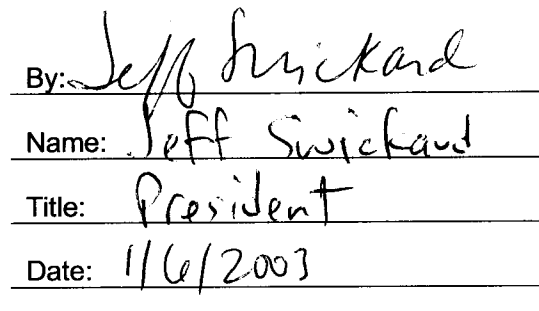 By: Jeff Swickard
Name: Jeff Swickard
Title: President
Date: 1/6/2003